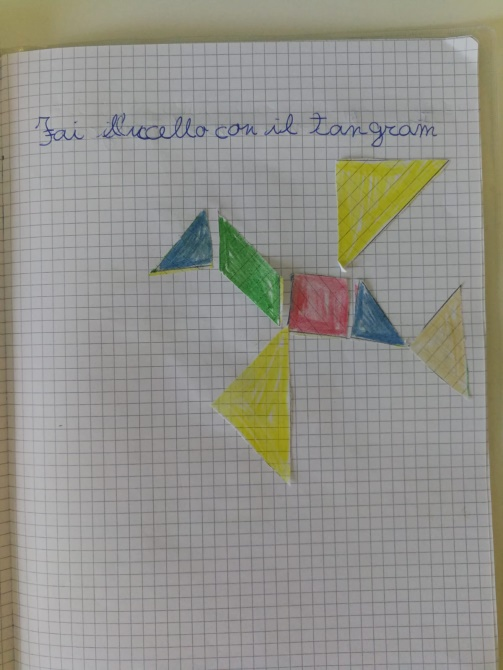 Fai l'uccello con il tangram